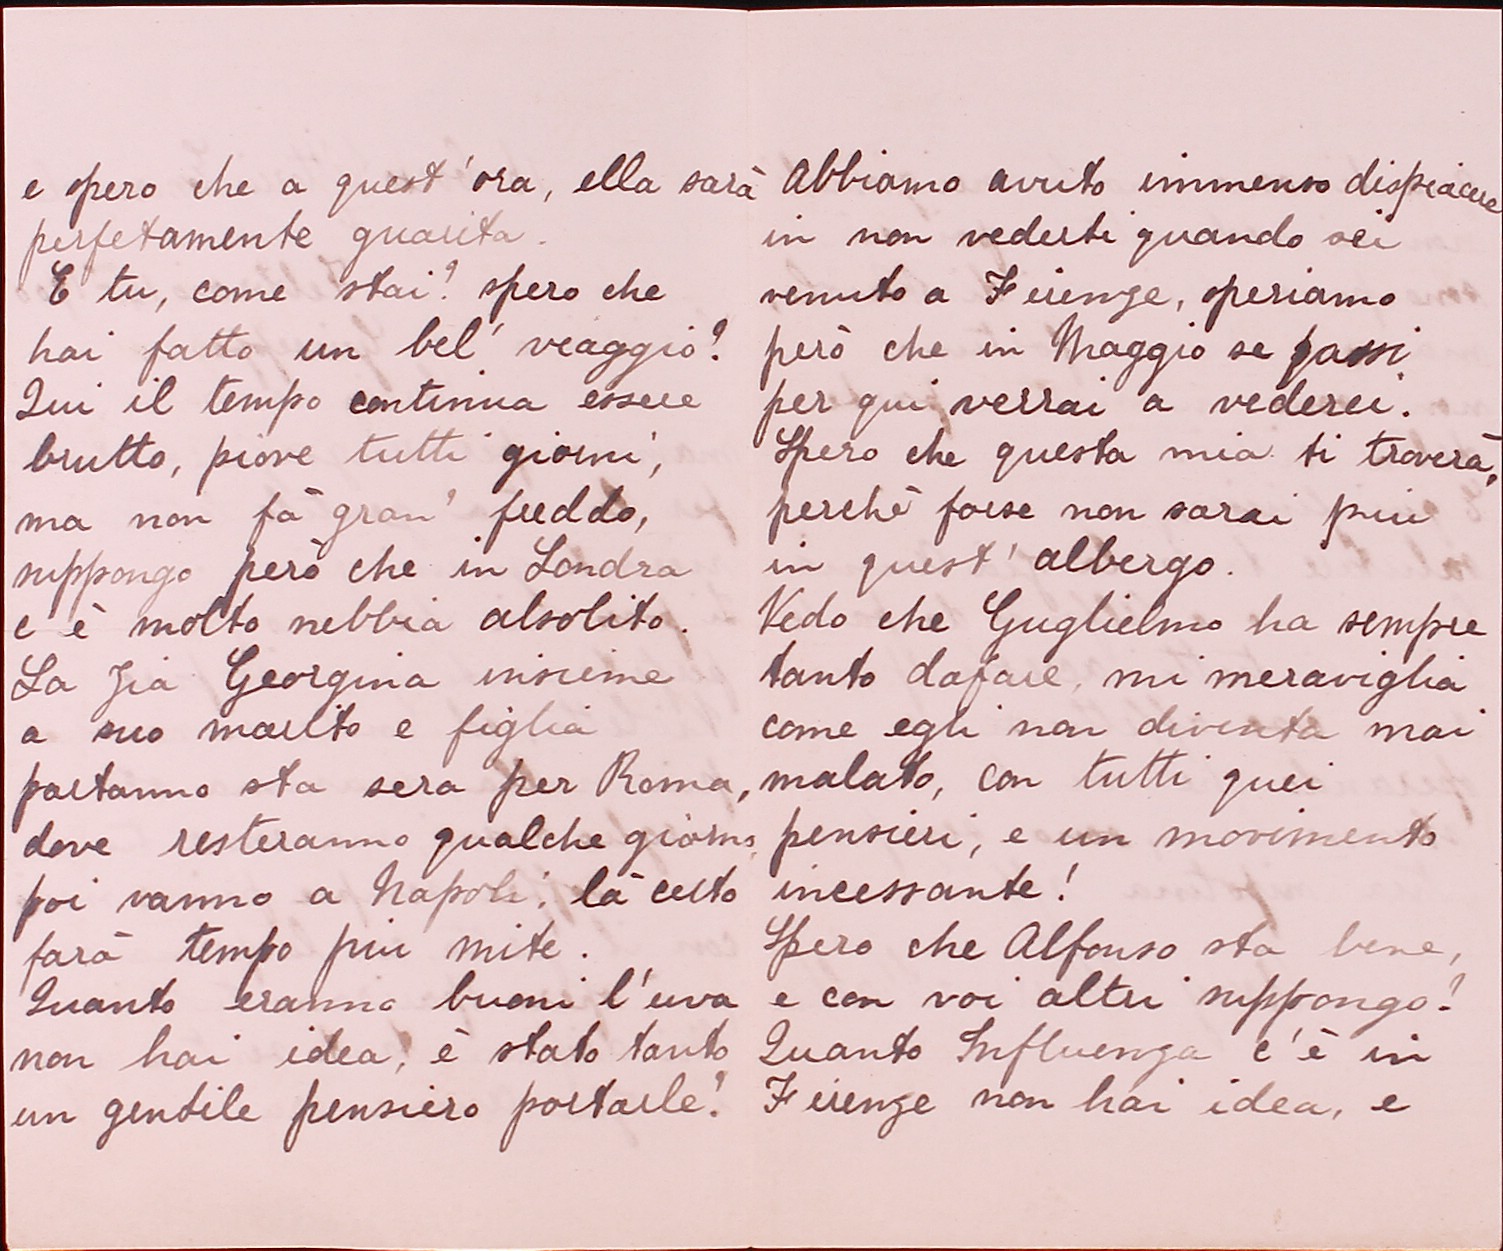 e spero che a quest'ora, ella sarà
perfetamente guarita.
E tu, come stai? spero che
hai fatto un bel' viaggio?
Qui il tempo continua essere
brutto, piove tutti giorni,
ma non fà gran' freddo,
suppongo però che in Londra
c è molto nebbia alsolito.
La Zia Georgina insieme
a suo marito e figlia
partanno sta sera per Roma,
dove resteranno qualche giorno,
poi vanno a Napoli, là certo
farà tempo piu mite.
Quanto eranno buoni l'uva
non hai idea, è stato tanto
un gentile pensiero portarle!
Abbiamo avuto immenso dispiacere
in non vederti quando sei
venuto a Firenze, speriamo
però che in Maggio se passi
per qui verrai a vederci.
Spero che questa mia ti troverà,
perchè forse non sarai piu
in quest' albergo.
Vedo che Guglielmo ha sempre
tanto dafare, mi meraviglia
come egli non diventa mai
malato, con tutti quei
pensieri, e un movimento
incessante!
Spero che Alfonso sta bene,
e con voi altri suppongo!
Quanto Influenza c'è in
Firenze non hai idea, e